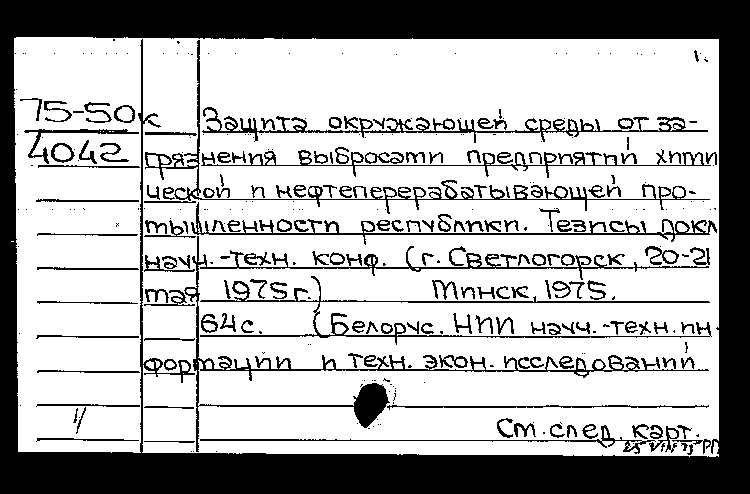 1.
75-50к Защита окружающей среды от за-
4042 грязнения выбросами предприятий хими
ческой и нефтеперерабатывающей про-
мышленности республики. Тезисы докл
науч.-техн. конф. (г. Светлогорск, 20-21
мая 1975г.) Минск, 1975.
64с. (Белорус. НИИ науч.-техн. ин-
формации и техн. экон. исследований
См. след. карт.